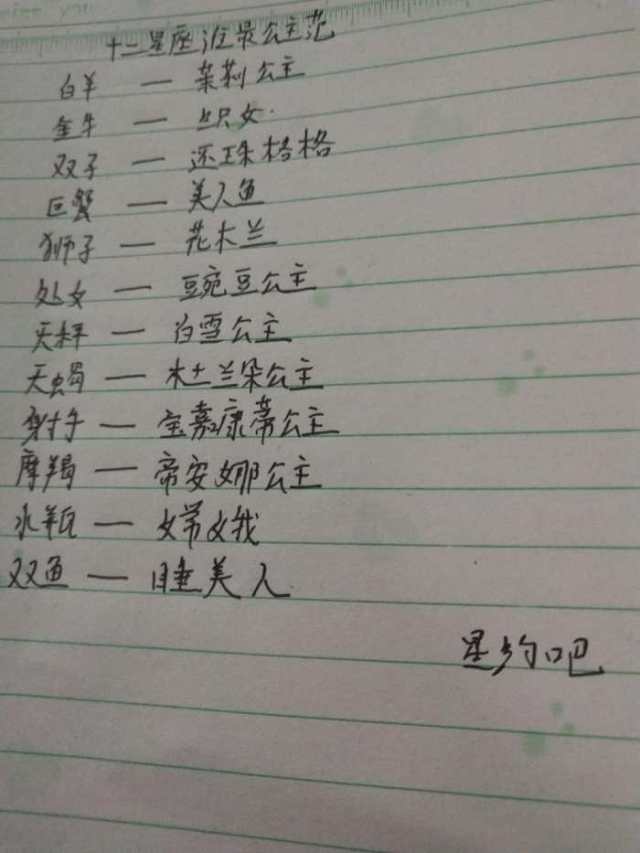 十二星座谁最公主范
白羊 — 茉莉公主
金牛 — 织女.
双子 — 还珠格格
巨蟹 — 美人鱼
狮子 — 花木兰
处女 — 豆豌豆公主
天秤 — 白雪公主
天蝎 — 杜兰朵公主
射手 — 宝嘉康蒂公主
摩羯 — 帝安娜公主
水瓶 — 嫦娥
双鱼 — 睡美人
星约吧